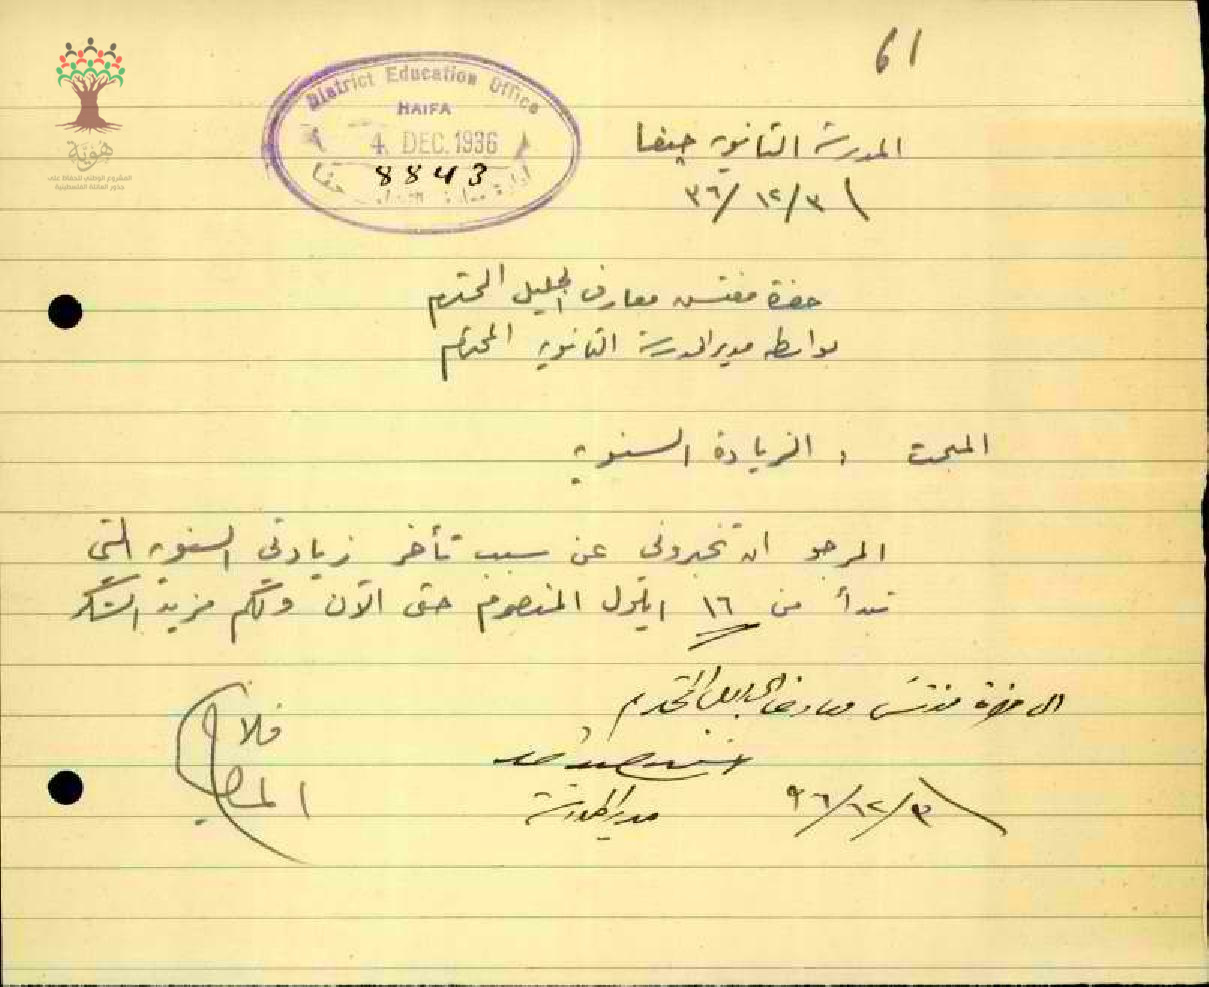 61
المدرسة الثانوية حيفا
٣٦/١٢/٣
District Education Office
HAIFA
4 DEC. 1936
8843
هوية
المشروع الوطني للحفاظ على
جذور العائلة الفلسطينية
حضرة مفتش معارف الجليل المحترم
بواسطة مدير المدرسة الثانوية المحترم
المبحث : الزيادة السنوية
المرجو ان تخبروني عن سبب تأخر زيادتي السنوية التي
تبدأ من ١٦ ايلول المنصرم حتى الآن ولكم مزيد الشكر
الى حضرة مفتش معارف الجليل المحترم
مدير المدرسة
٣٦/١٢/٣
فلاح